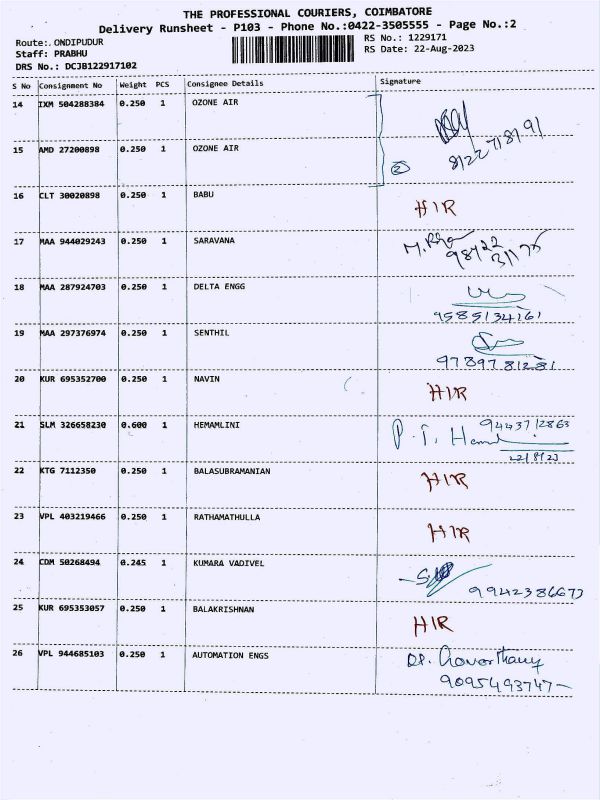 THE PROFESSIONAL COURIERS, COIMBATORE
Delivery Runsheet - P103 - Phone No.:0422-3505555 - Page No.:2
Route:. ONDIPUDUR
RS No.: 1229171
Staff: PRABHU
RS Date: 22-Aug-2023
DRS No.: DCJB122917102
S No Consignment No Weight PCS Consignee Details Signature
14 IXM 504288384 0.250 1 OZONE AIR
15 AMD 27200898 0.250 1 OZONE AIR
2
16 CLT 30020898 0.250 1 BABU HIR
17 MAA 944029243 0.250 1 SARAVANA
98422
31175
18 MAA 287924703 0.250 1 DELTA ENGG
9585134161
19 MAA 297376974 0.250 1 SENTHIL
9789781281
20 KUR 695352700 0.250 1 NAVIN HIR
21 SLM 326658230 0.600 1 HEMAMLINI 9443712863
P. T.
22/8/23
22 KTG 7112350 0.250 1 BALASUBRAMANIAN HIR
23 VPL 403219466 0.250 1 RATHAMATHULLA HIR
24 CDM 50268494 0.245 1 KUMARA VADIVEL
9942386673
25 KUR 695353057 0.250 1 BALAKRISHNAN HIR
26 VPL 944685103 0.250 1 AUTOMATION ENGS
9095493747